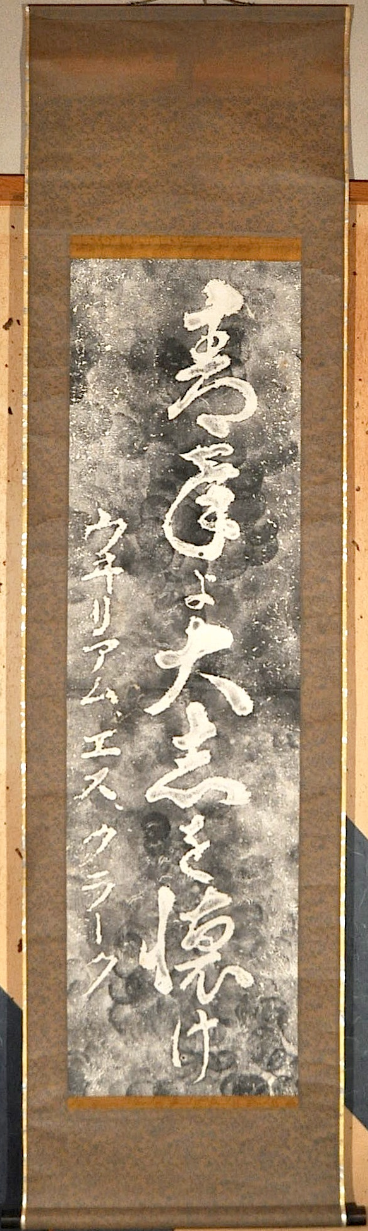 青年よ大志を懐け
ウヰリアム、エス、クラーク